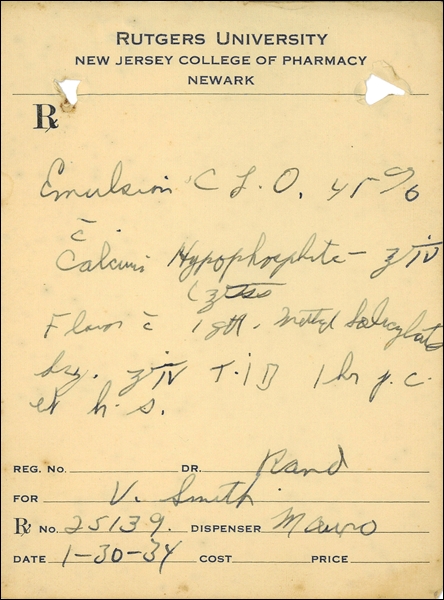 RUTGERS UNIVERSITY
NEW JERSEY COLLEGE OF PHARMACY
NEWARK
℞
Emulsion C L. O. 45 %
c̄
Calcium Hypophosphite – ʒ IV
(ʒ ss
Flavor c̄ 1 gtt. Methyl Salicylate
Sig. ʒ IV T.I D 1 hr p. c.
et h. s.
REG. NO. DR. Rand
FOR V. Smith
℞ No. 25139. DISPENSER Mauro
DATE 1-30-34 COST PRICE